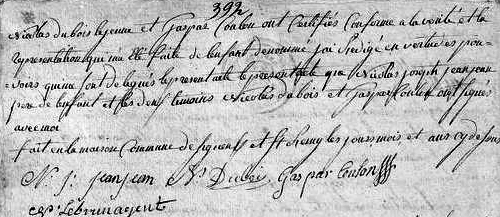 392
Nicolas dubois lejeune et Gaspar Coulon ont Certifiés Conforme a la verité et la
representation qui ma été faite de lenfant denommé jai Redigé en vertu des pou-
-voirs qui me sont delegués le present acte que Nicolas joseph jeanjean
pere de lenfant et les deux temoins Nicolas dubois et Gaspar Coulon ont signés
avec moi
fait en la maison Commune de et st hemy les jours mois et ans cy dessus
N. J. jeanjean Ns Dubois Gaspar Coulon
Ns Lebrun agent